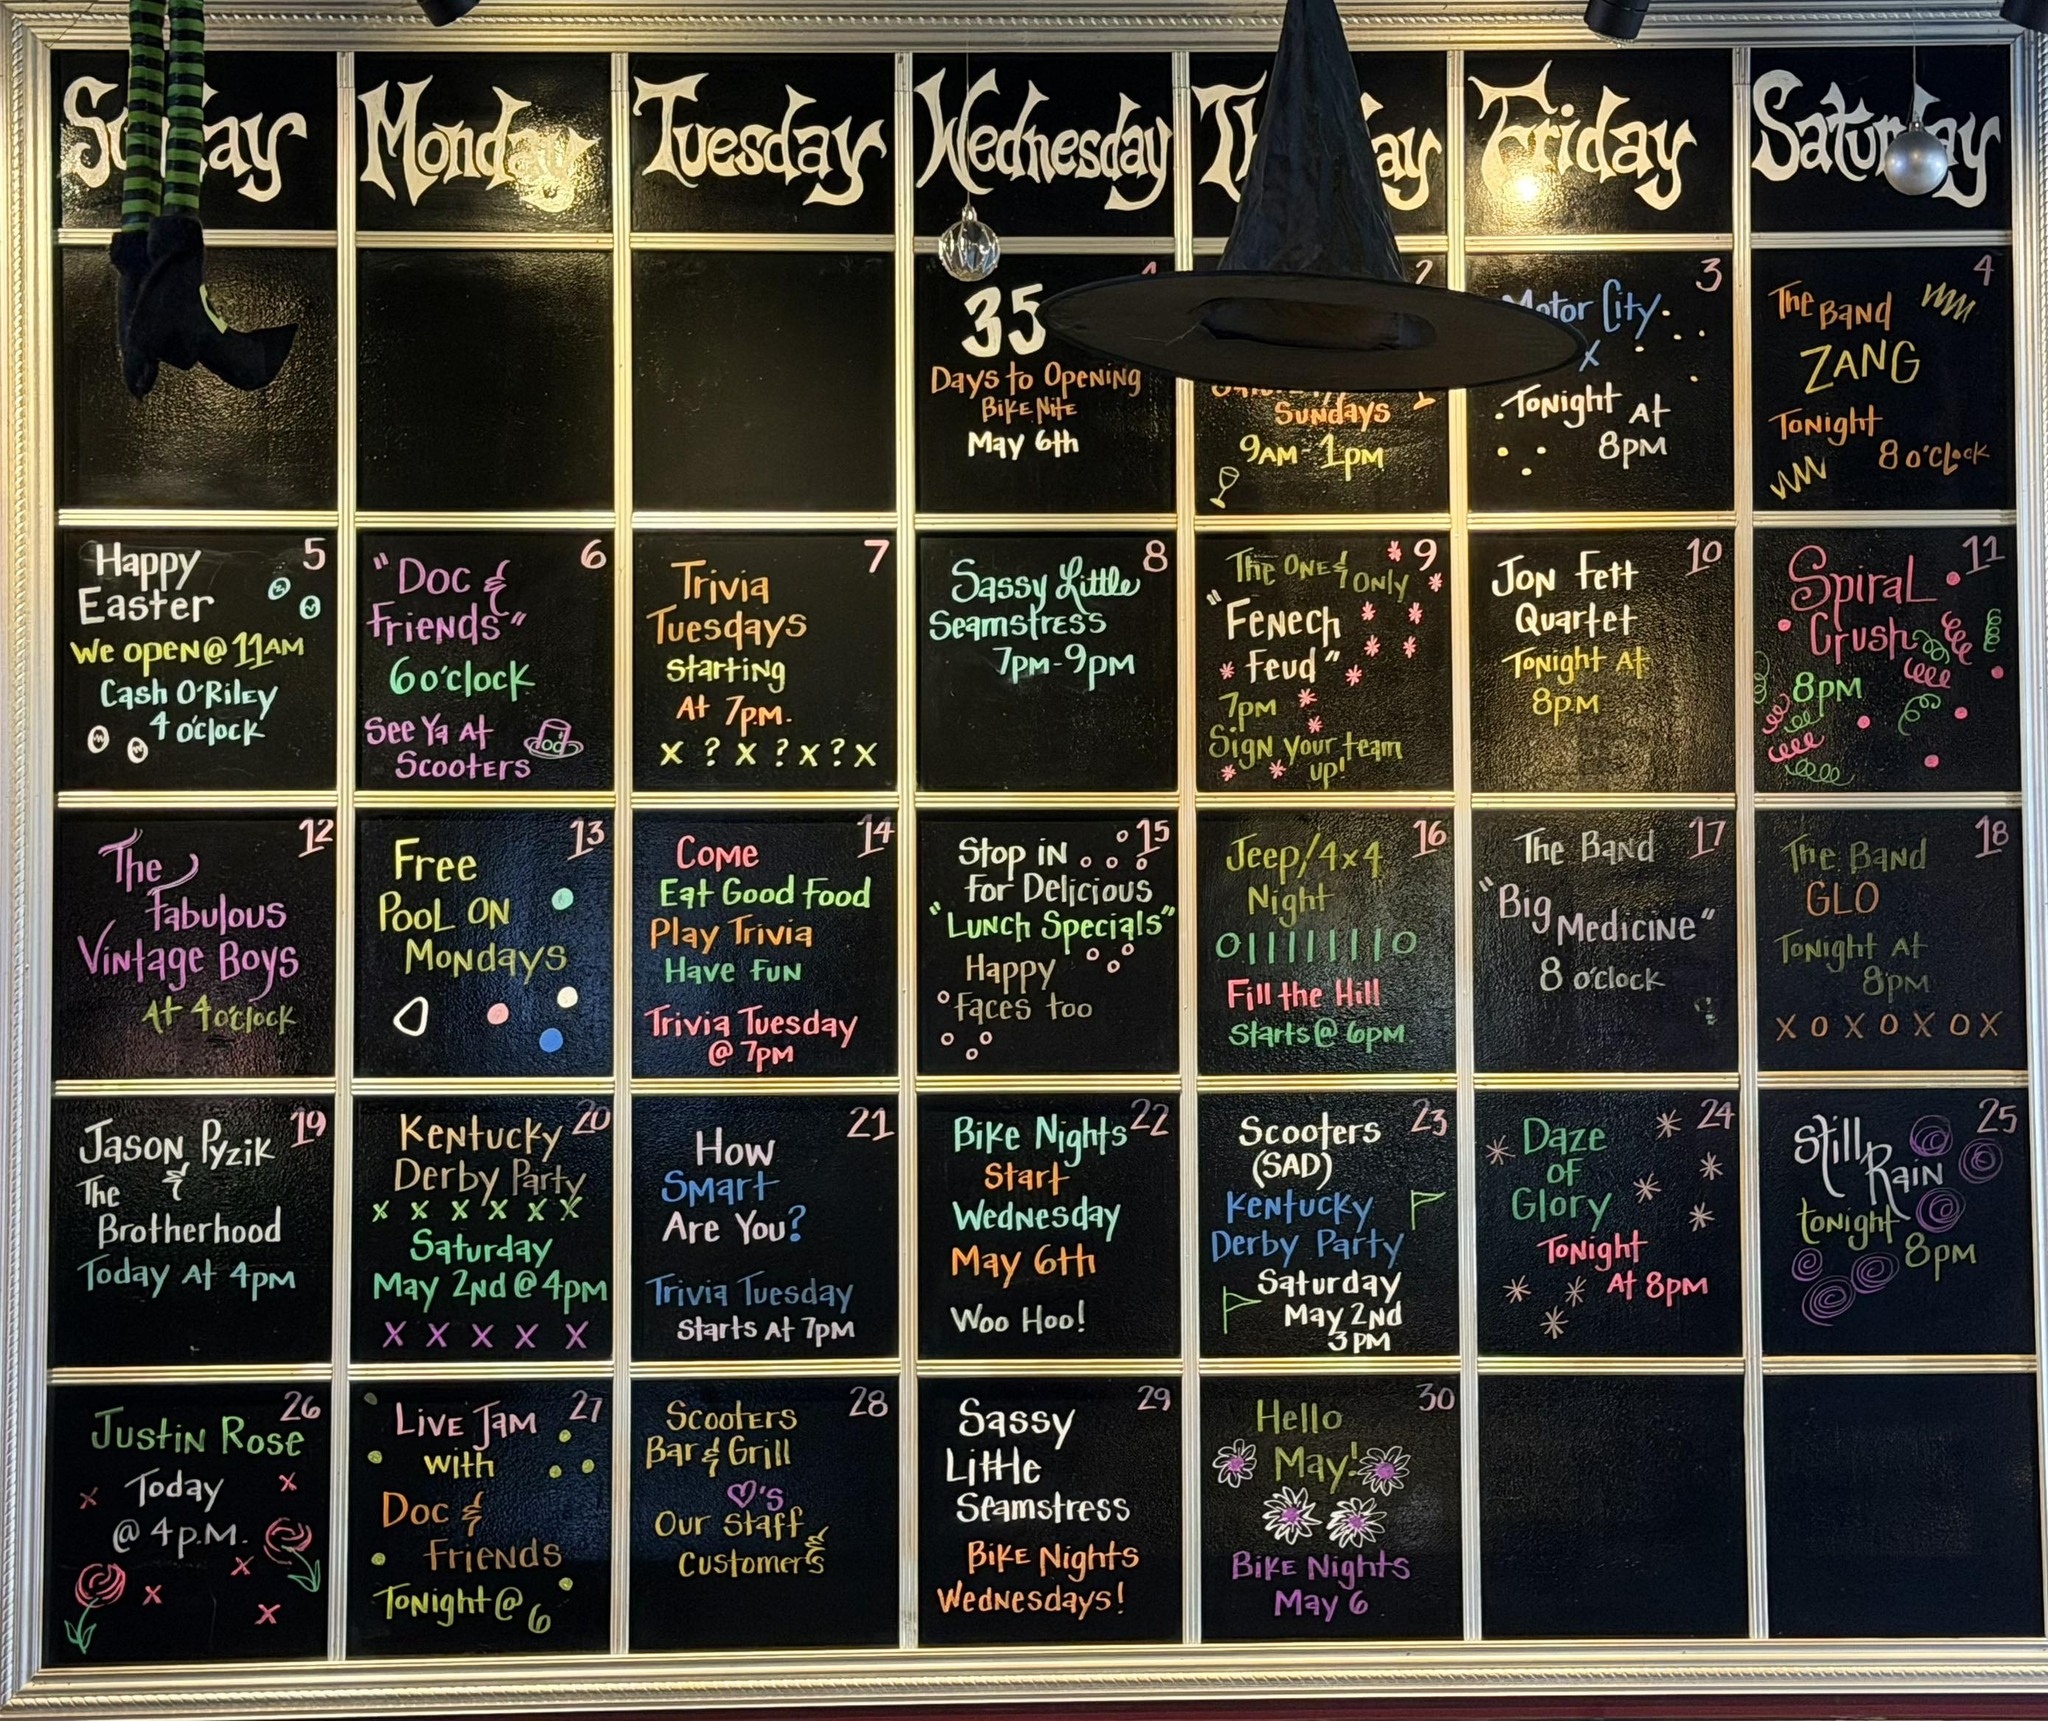 Monday Tuesday Wednesday Friday
35
Days to Opening
Bike Nite
May 6th
2
Sundays
9AM-1PM
3
City
X
Tonight At
8PM
4
The Band
ZANG
Tonight
8 o'clock
5
Happy
Easter
We open @ 11AM
Cash O'Riley
4 o'clock
6
"Doc &
Friends"
6 o'clock
See Ya At
Scooters
doc
7
Trivia
Tuesdays
Starting
At 7pm.
X ? X ? X ? X
8
Sassy Little
Seamstress
7pm-9pm
9
The One &
Only
"Fenech
Feud"
7pm
Sign your team
up!
10
Jon Fett
Quartet
Tonight At
8pm
11
Spiral
Crush
8pm
12
The
Fabulous
Vintage Boys
At 4 o'clock
13
Free
Pool on
Mondays
14
Come
Eat Good Food
Play Trivia
Have Fun
Trivia Tuesday
@ 7pm
15
Stop in
for Delicious
"Lunch Specials"
Happy
faces too
16
Jeep/4x4
Night
O||||||||O
Fill the Hill
Starts @ 6pm
17
The Band
"Big
Medicine"
8 o'clock
18
The Band
GLO
Tonight At
8pm
X O X O X O X
19
Jason Pyzik
&
The
Brotherhood
Today At 4pm
20
Kentucky
Derby Party
X X X X X X
Saturday
May 2nd @ 4pm
X X X X X
21
How
Smart
Are You?
Trivia Tuesday
Starts At 7pm
22
Bike Nights
Start
Wednesday
May 6th
Woo Hoo!
23
Scooters
(SAD)
Kentucky
Derby Party
Saturday
May 2nd
3pm
24
Daze
of
Glory
Tonight
At 8pm
25
Still
Rain
tonight
8pm
26
Justin Rose
Today
@ 4p.m.
27
Live Jam
with
Doc &
Friends
Tonight @
6
28
Scooters
Bar & Grill
♡'s
Our Staff
&
Customers
29
Sassy
Little
Seamstress
Bike Nights
Wednesdays!
30
Hello
May!
Bike Nights
May 6